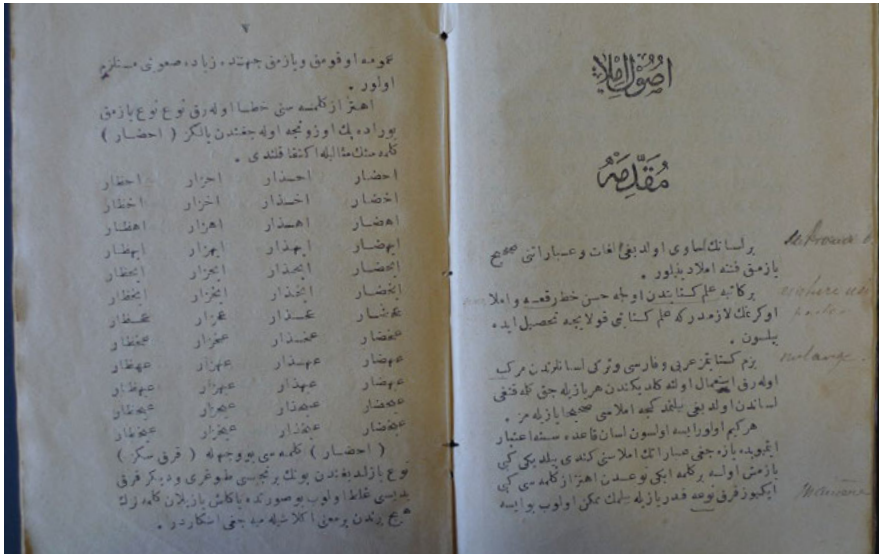 اصول املا
مقدمه
بر لسانك حاوی اولدیغی لغات و عباراتی صحیح
یازمق فننه املا دینیلور .
بر كاتبه علم كتابتدن اولجه حسن خط رقعه و املا
اوكرنمك لازمدركه علم كتابتی قولایجه تحصیل ایده
بیلسون .
بزم كتابتمز عربی و فارسی و تركی لسانلرندن مركب
اوله رق استعمال اولنه كلدیكندن هر یازیله جق كلمه قنغی
لساندن اولدیغی بیلنمدكجه املاسی صحیحا یازیله مز .
هركیم اولورایسه اولسون لسان قاعده سنه اعتبار
ایتمیوبده یازه جغی عباراتك املاسنی كندی بیلدیكی كبی
یازمش اولسه بر كلمه ایكی نوعدن اهتزاز كلمه سی كبی
ایكیوز قرق نوعه قدر یازیله بیلمك ممكن اولوب بو ایسه
٧
عمومه اوقومق و یازمق جهتنده زیاده صعوبتی مستلزم
اولور .
اهتزاز كلمه سنی خطا اوله رق نوع نوع یازمق
بوراده پك اوزونجه اوله جغندن یالكز ( احضار )
كلمه سنك مثالیله اكتفا قلندی .
احضار احذار احزار احظار
اخضار اخذار اخزار اخظار
اهضار اهذار اهزار اهظار
ایهضار ایهذار ایهزار ایهظار
ایحضار ایحذار ایحزار ایحظار
ایخضار ایخذار ایخزار ایخظار
عحضار عحذار عحزار عحظار
عخضار عخذار عخزار عخظار
عهضار عهذار عهزار عهظار
عیهضار عیهذار عیهزار عیهظار
عیحضار عیحذار عیحزار عیحظار
عیخضار عیخذار عیخزار عیخظار
( احضار ) كلمه سی بو وجهله ( قرق سكز )
نوع یازلدیغندن بونك برنجیسی طوغری و دیكر قرق
یدیسی غلط اولوب بو صورتده یاكلش یازیلان كلمه لرك
هیچ برندن بر معنی اكلاشیله میه جغی آشكاردر .